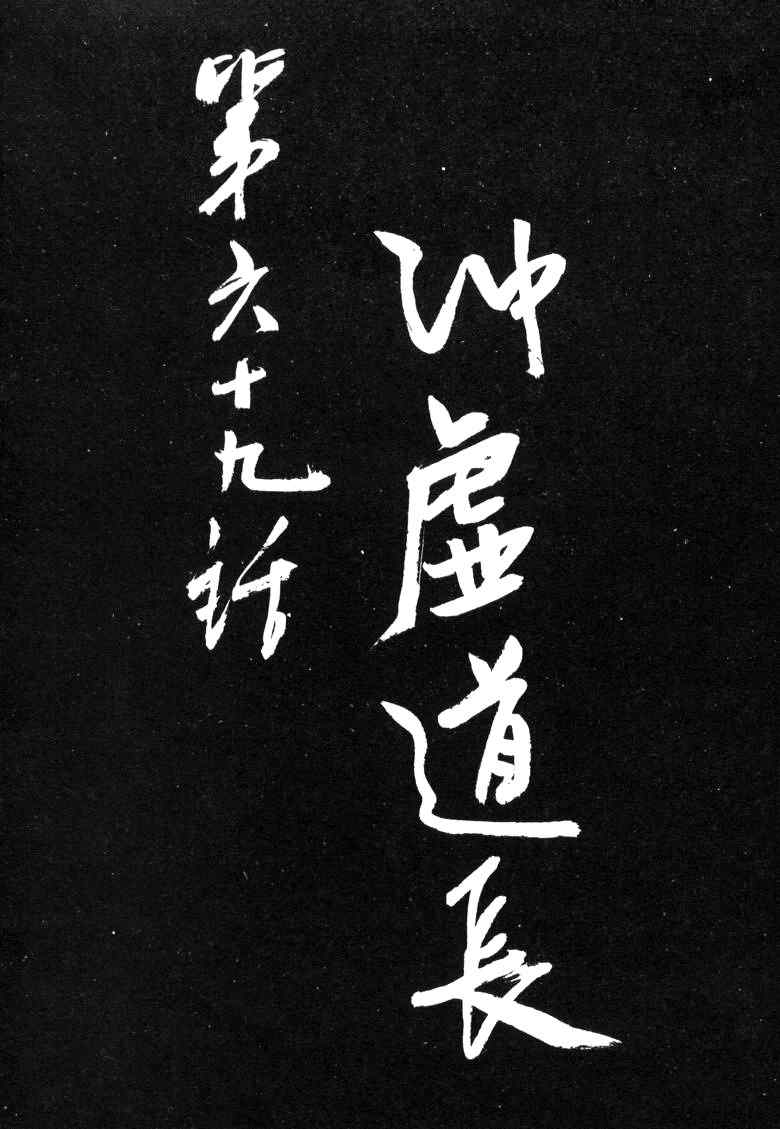 沖虛道長
第六十九話